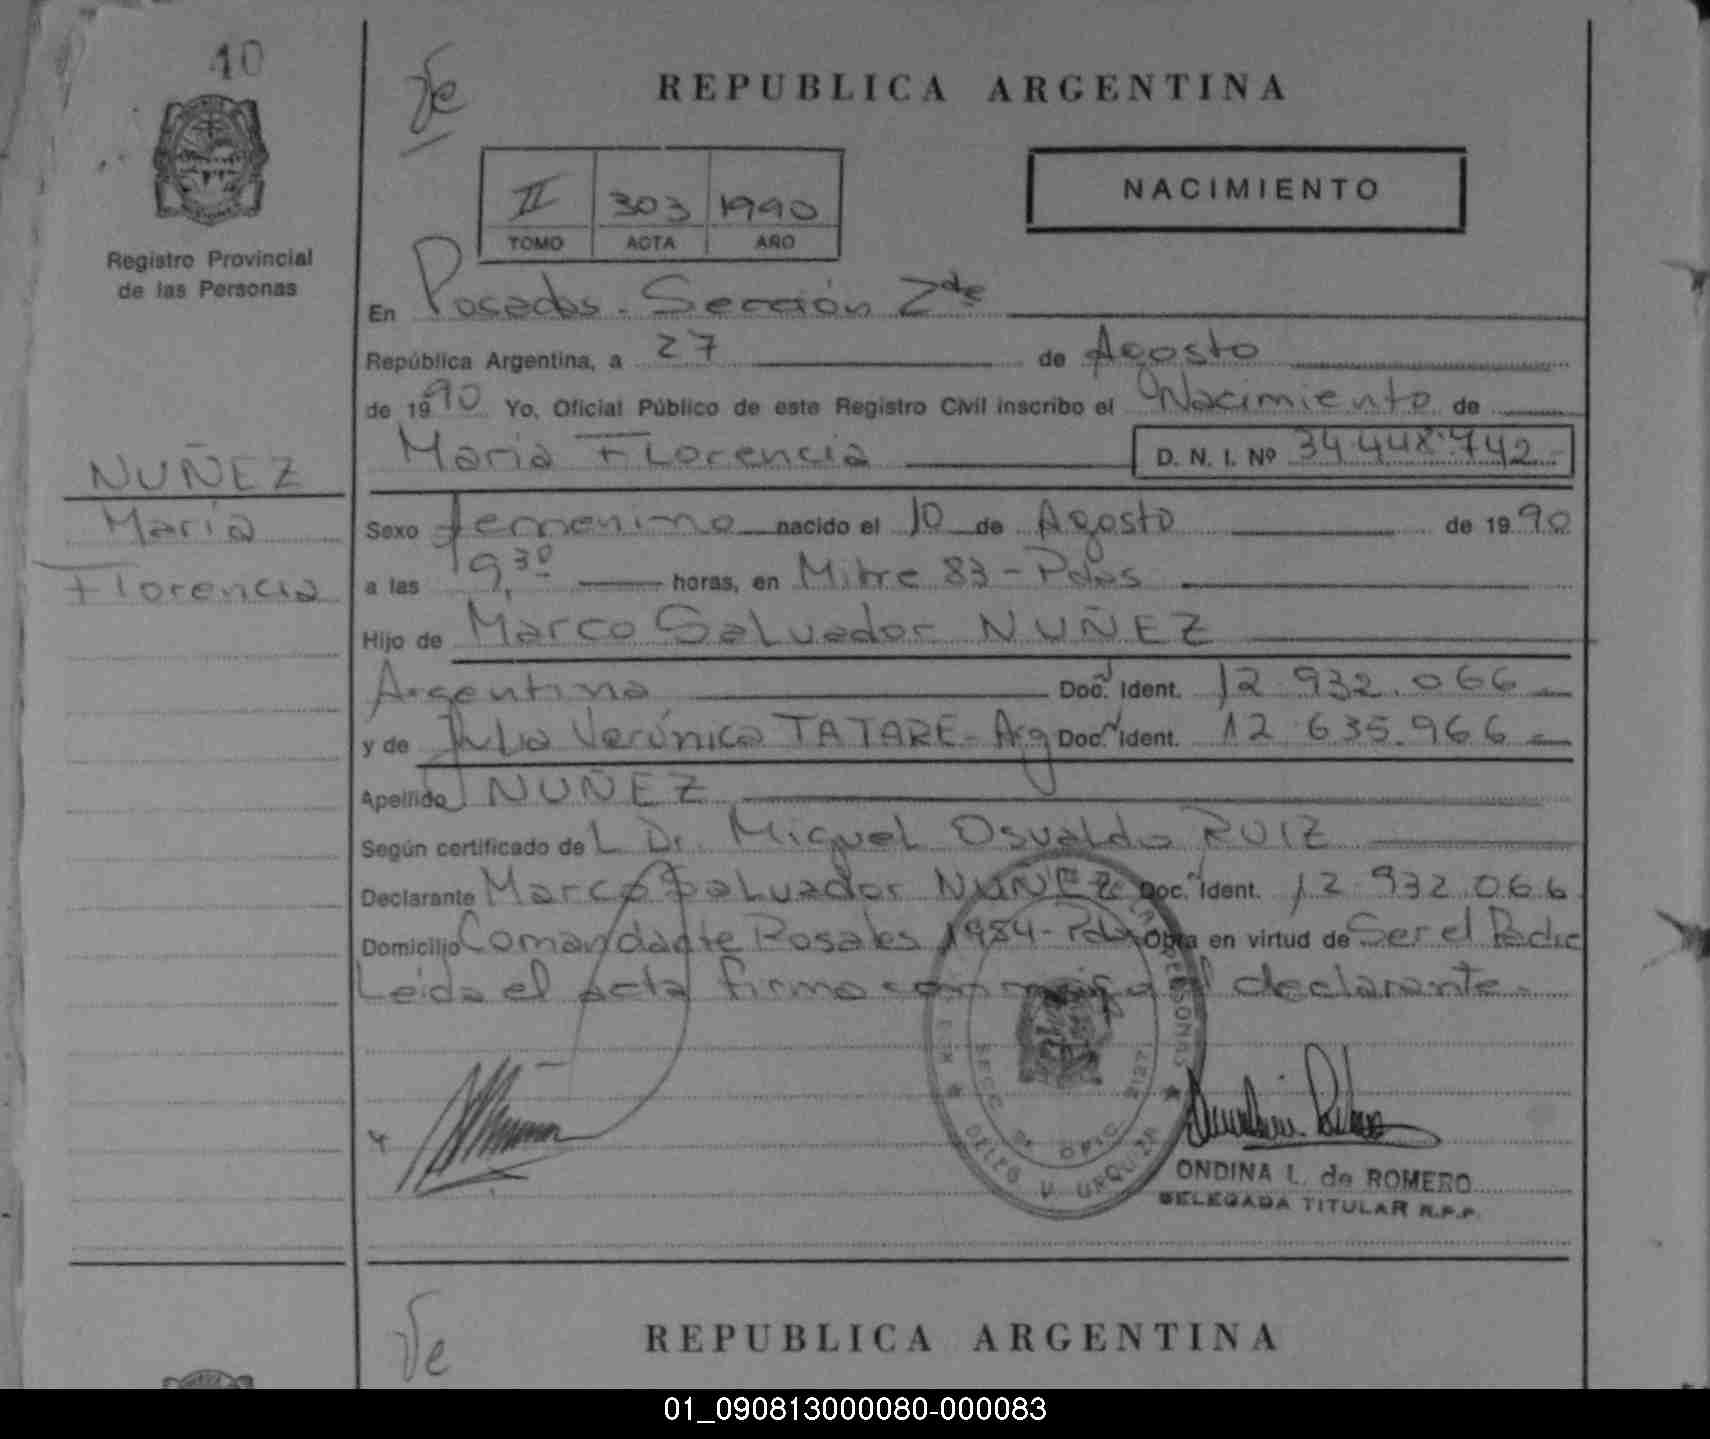 10
Registro Provincial
de las Personas
NUÑEZ
María
Florencia
REPUBLICA ARGENTINA
II 303 1990
TOMO ACTA AÑO
NACIMIENTO
En Posadas - Sección 2da
República Argentina, a 27 de Agosto
de 1990 Yo, Oficial Público de este Registro Civil inscribo el Nacimiento de
Maria Florencia D. N. I. Nº 34.448.742-
Sexo femenino nacido el 10 de Agosto de 1990
a las 19,30 horas, en Mitre 83 - Pdas
Hijo de Marco Salvador NUÑEZ
Argentina Doc. Ident. 12.932.066
y de Julia Verónica TATARE - Arg Doc. Ident. 12.635.966
Apellido NUÑEZ
Según certificado de L Dr. Miguel Osvaldo RUIZ
Declarante Marco Salvador NUÑEZ Doc. Ident. 12.932.066
Domicilio Comandante Rosales 1984 - Pdas Obra en virtud de Ser el Padre
Leida el acta firma conmigo el declarante.
PERSONAS
SECC 2a OFIC 2127
DELEG V URQUIZA
ONDINA L. de ROMERO
DELEGADA TITULAR R.P.P.
REPUBLICA ARGENTINA
01_090813000080-000083